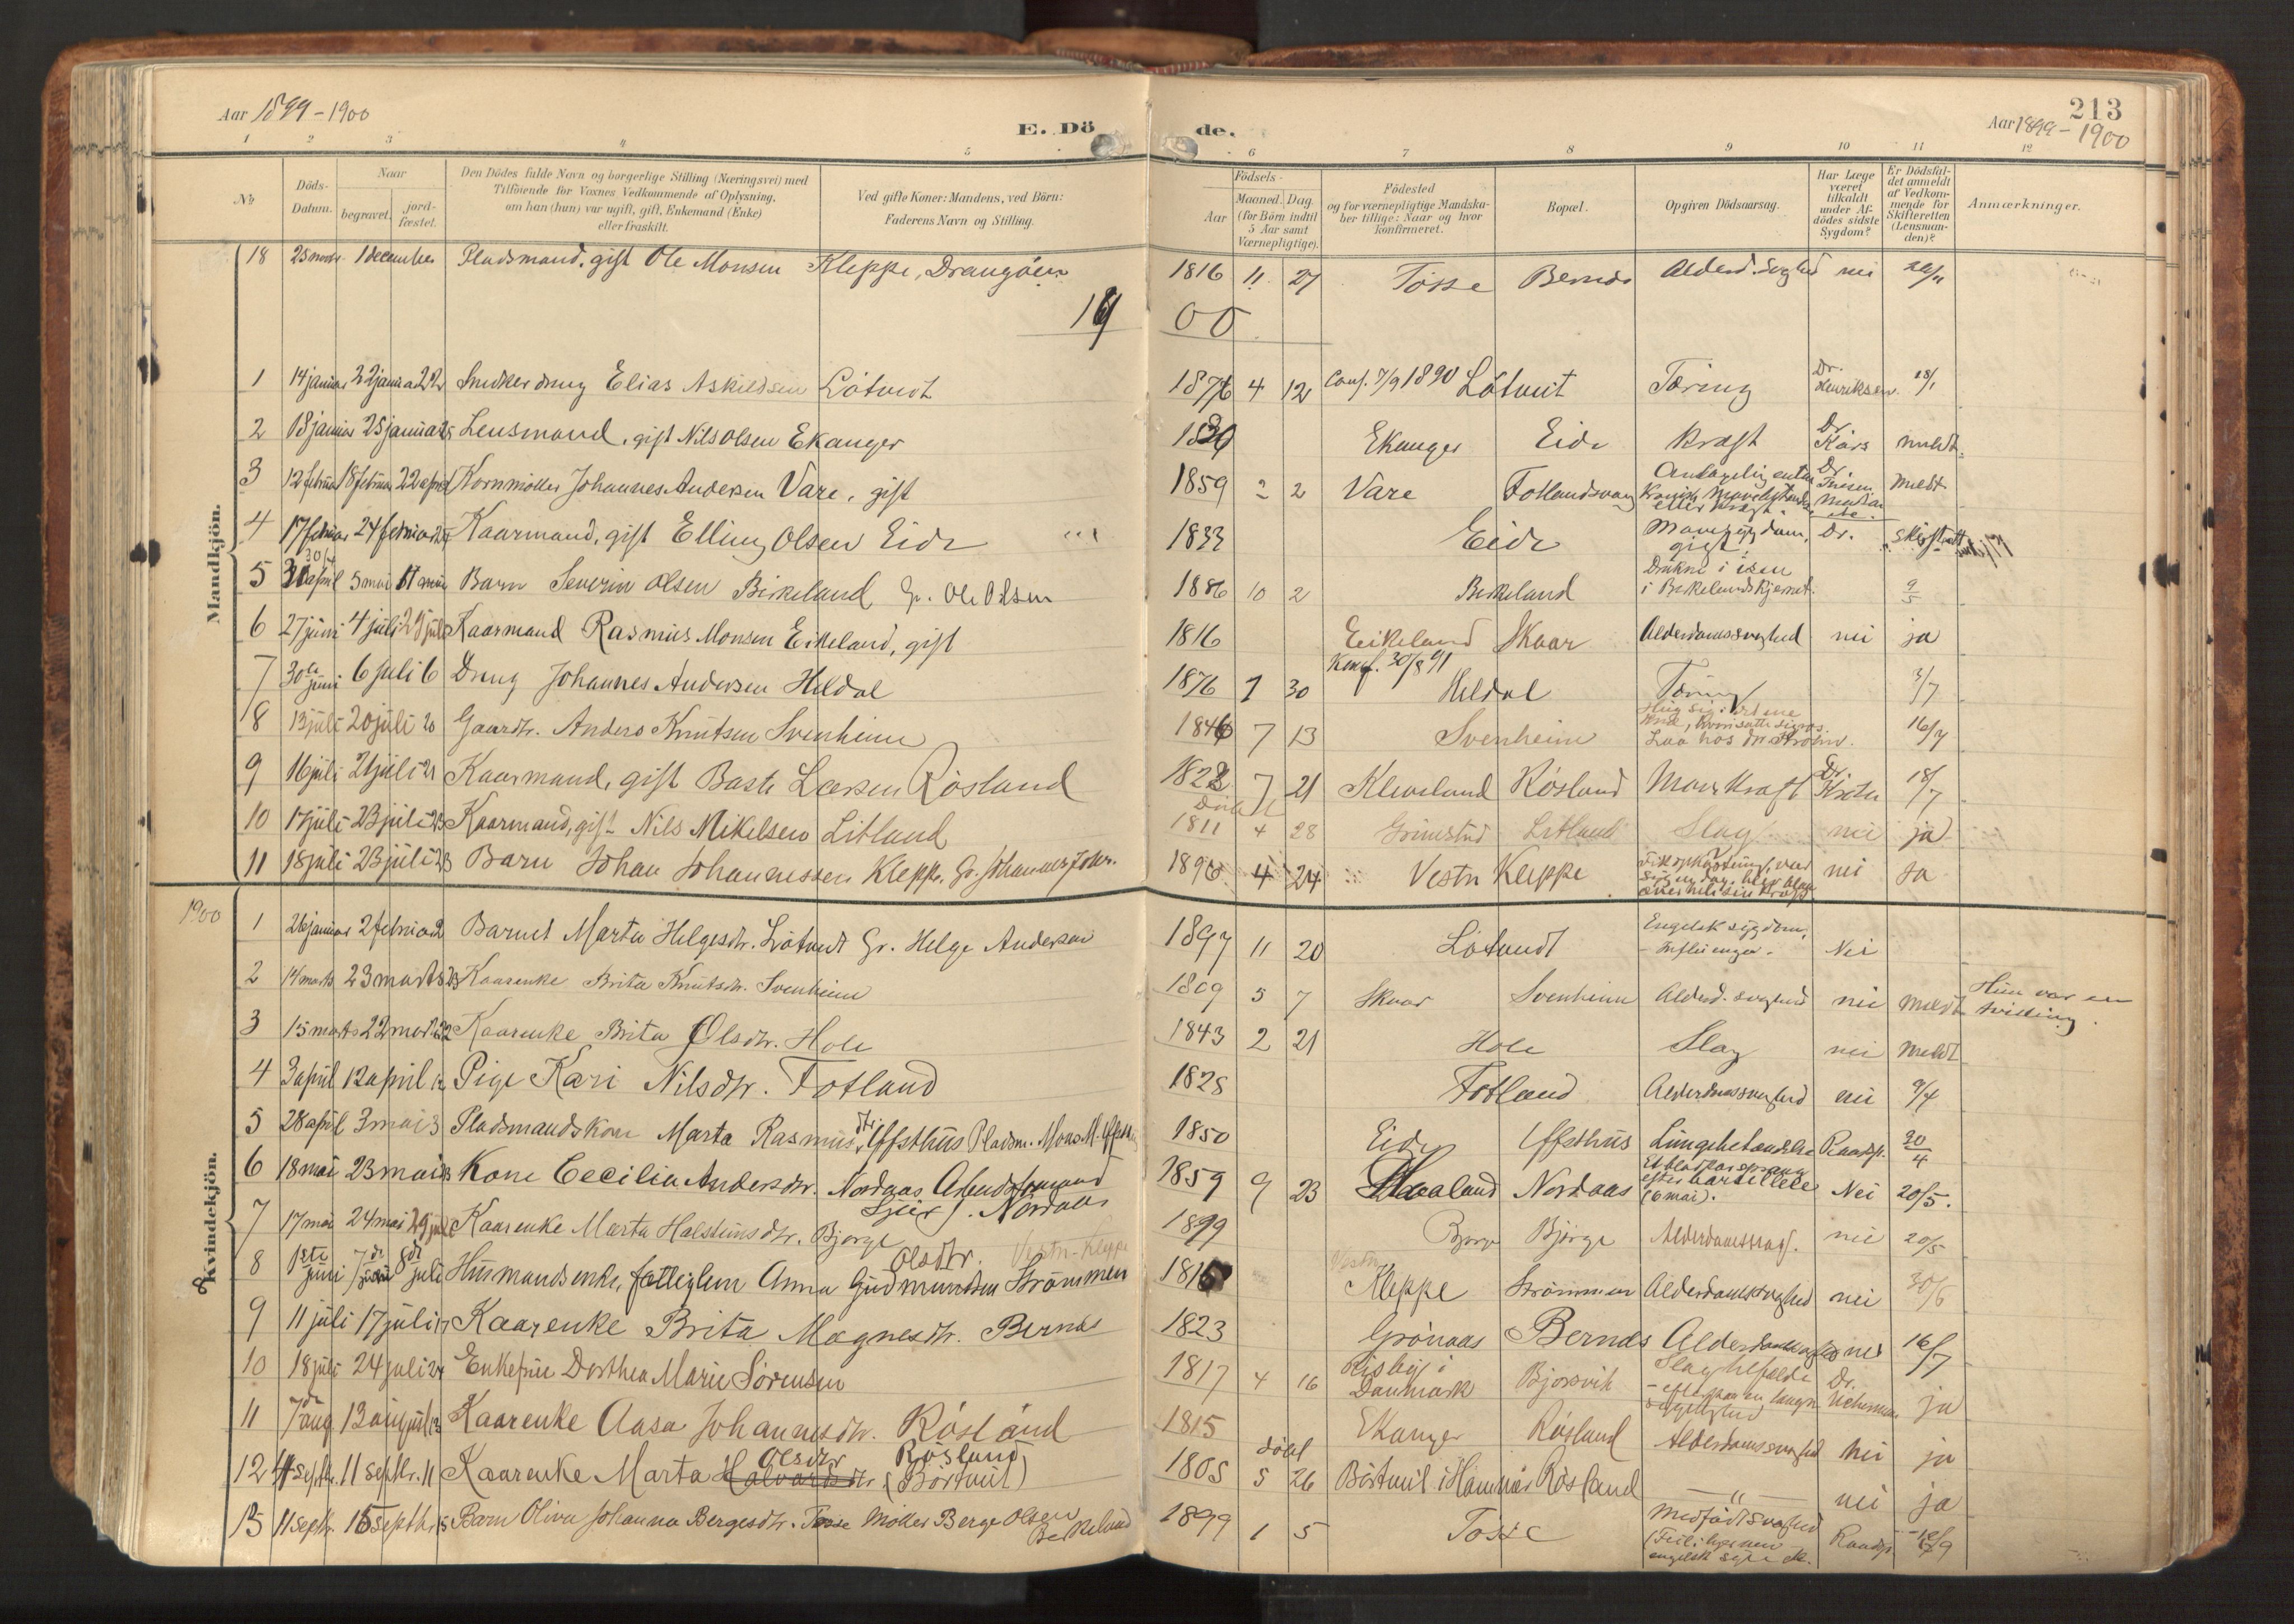 Aar 1899-1900
E. Dö de.
213
Aar 1899-1900
1 2 3 4 5 6 7 8 9 10 11 12
№
Döds-Datum.
Naar
begravet.
jord-fæstet.
Den Dödes fulde Navn og borgerlige Stilling (Næringsvei) med
Tilföiende for Voxnes Vedkommende af Oplysning,
om han (hun) var ugift, gift, Enkemand (Enke)
eller fraskilt.
Ved gifte Koner: Mandens, ved Börn:
Faderens Navn og Stilling.
Födsels-
Aar
Maaned. Dag.
(for Börn indtil
5 Aar samt
Værnepligtige).
Födested
og for værnepligtige Mandska-
ber tillige: Naar og hvor
konfirmeret.
Bopæl.
Opgiven Dödsaarsag.
Har Læge
været
tilkaldt
under Af-
dödes sidste
Sygdom?
Er Dödsfal-
det anmeldt
af Vedkom-
mende for
Skifteretten
(Lensman-
den)?
Anmærkninger.
Mandkjön.
18 25 novbr. 1 december Pladsmand, gift Ole Monsen Kleppe, 1816 11 27 Tosse Bernes Alderd. svaghed nei
1900
1 14 januar 22 januar 22 Snedker dreng Elias Askildsen Lötveit 1876 4 12 Conf. 7/9 1890 Lötveit Tæring Dr. Henriksen 18/1
2 18 januar 25 januar 25 Lensmand, gift Nils Olsen Ekanger 1830 Ekanger Eide Kræft Dr. Kars meldt.
3 12 februar 18 februar 22 april Kornmöller Johannes Andersen Vare, gift 1859 2 2 Vare Fotlandsvaag eller kræft. Dr. meldt
4 17 februar 24 februar Kaarmand, gift Elling Olsen Eide 1833 Eide Mavesygdom, gigt. Dr.
5 april 5 mai mai Barn Severin Olsen Birkeland Gr. Ole Olsen 1886 10 2 Birkeland Drukne i isen i Birkelandskjernet. 2/5
6 27 juni 4 juli 29 juli Kaarmand Rasmus Monsen Eikeland, gift 1816 Eikeland Skaar Alderdomssvaghed nei ja
7 30te juni 6 juli 6 Dreng Johannes Andersen Heldal 1876 1 30 Konf. 30/8 91 Heldal Tæring 3/7
8 13 juli 20 juli 20 Gaardbr. Anders Knutsen Svenheim 1846 7 13 Svenheim Laa hos dr. 16/7
9 16 juli 21 juli 21 Kaarmand, gift Baste Larsen Rösland 1822 7 21 Kleveland Rösland Mavekræft Dr. 18/7
10 17 juli 23 juli 23 Kaarmand, gift Nils Mikelsen Litland 1811 4 28 Grimstad Litland Slag nei ja
11 18 juli 23 juli 23 Barn Johan Johannessen Kleppe, Gr. Johannes Johs. 1890 4 24 Vestre Kleppe nei Ja
Kvindekjön.
1900
1 26 januar 2 februar 2 Barnet Marta Helgesdtr. Lötveit Gr. Helge Andersen 1897 11 20 Lötveit Engelsk sygdom, - Influenza - Nei
2 14 marts 23 marts 23 Kaarenke Brita Knutsdtr. Svenheim 1809 5 7 Skaar Svenheim Alderd. svaghed nei meldt Hun var en tvilling.
3 15 marts 22 marts 22 Kaarenke Brita Olsdtr. Hole 1843 2 21 Hole Slag nei meldt
4 3 april 12 april 12 Pige Kari Nilsdtr. Fotland 1828 Fotland Alderdomssvaghed nei 9/4
5 28 april 3 mai 3 Pladsmandskone Marta Rasmusdtr. Yffsthus Pladsm. Mons M. Yffsthus 1850 Eide Yffsthus Lungebetændelse Raadsp. 30/4
6 18 mai 23 mai 23 Kone Cecilia Andersdtr. Nordaas 1859 9 23 Haaland Nordaas Et blodkar sprang efter barselleie (6 mai). Nei 20/5.
7 17 mai 24 mai 29 juli Kaarenke Marta Halstensdtr. Bjørge 1819 Bjørge Bjørge Alderdomssvagh. nei 20/5
8 1ste juni 7de juni 8de juli Husmandsenke, fattiglem Anna Gudmundsen Olsdtr. Strömmen Vestre-Kleppe 1815 Vestre Kleppe Strömmen Alderdomssvaghed nei 30/6
9 11 juli 17 juli 17 Kaarenke Brita Magnesdtr. Bernes 1823 Grönaas Bernes Alderdomssvaghed nei 16/7
10 18 juli 24 juli 24 Enkefrue Dorthea Marie Sörensen 1817 4 16 Risböl i Danmark Bjorsvik Dr. ja
11 7de aug 13 august 13 Kaarenke Aasa Johannesdtr. Rösland 1815 Ekanger Rösland Alderdomssvaghed Nei ja
12 4 septbr. 11 septbr. 11 Kaarenke Marta Halvardsdtr Olsdtr Rösland (Börtveit) 1805 5 26 döbt Börtveit i Hammer Rösland — " — nei ja
13 11 septbr. 15 septbr. 15 Barn Oliva Johanna Bergesdtr. Tosse Möller Berge Olsen Birkeland 1899 1 5 Tosse Medfödt svaghed Raadsp.